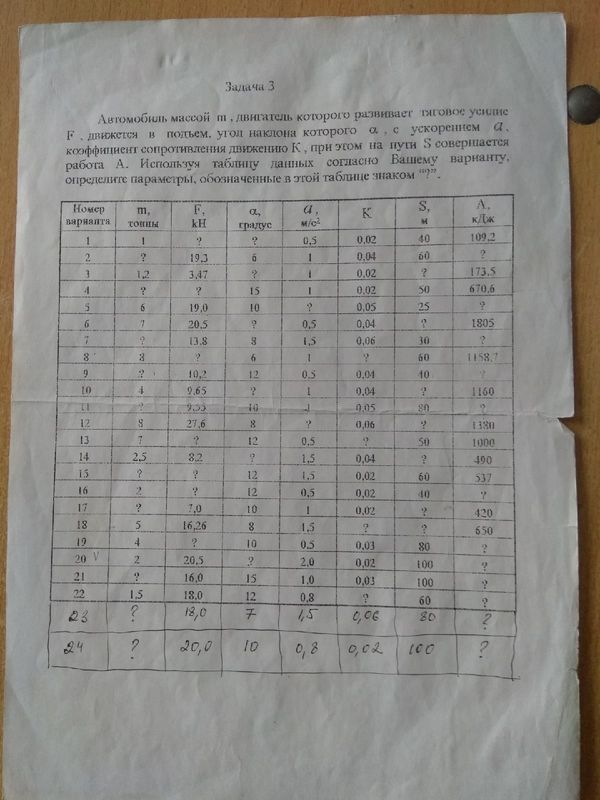 Задача 3
Автомобиль массой m , двигатель которого развивает тяговое усилие
F , движется в подъем, угол наклона которого α , с ускорением a ,
коэффициент сопротивления движению К , при этом на пути S совершается
работа А. Используя таблицу данных согласно Вашему варианту,
определите параметры, обозначенные в этой таблице знаком "?".
Номер варианта m, тонны F, kH α, градус a, м/с² К S, м А, кДж
1 1 ? ? 0,5 0,02 40 109,2
2 ? 19,3 6 1 0,04 60 ?
3 1,2 3,47 ? 1 0,02 ? 173,5
4 ? ? 15 1 0,02 50 670,6
5 6 19,0 10 ? 0,05 25 ?
6 7 20,5 ? 0,5 0,04 ? 1805
7 ? 13,8 8 1,5 0,06 30 ?
8 8 ? 6 1 ? 60 1158,7
9 ? 10,2 12 0,5 0,04 40 ?
10 4 9,65 ? 1 0,04 ? 1160
11 ? 10 0,05 80 ?
12 8 27,6 8 ? 0,06 ? 1380
13 7 ? 12 0,5 ? 50 1000
14 2,5 8,2 ? 1,5 0,04 ? 490
15 ? ? 12 1,5 0,02 60 537
16 2 ? 12 0,5 0,02 40 ?
17 ? 7,0 10 1 0,02 ? 420
18 5 16,26 8 1,5 ? ? 650
19 4 ? 10 0,5 0,03 80 ?
20 V 2 20,5 ? 2,0 0,02 100 ?
21 ? 16,0 15 1,0 0,03 100 ?
22 1,5 18,0 12 0,8 ? 60 ?
23 ? 18,0 7 1,5 0,06 80 ?
24 ? 20,0 10 0,8 0,02 100 ?